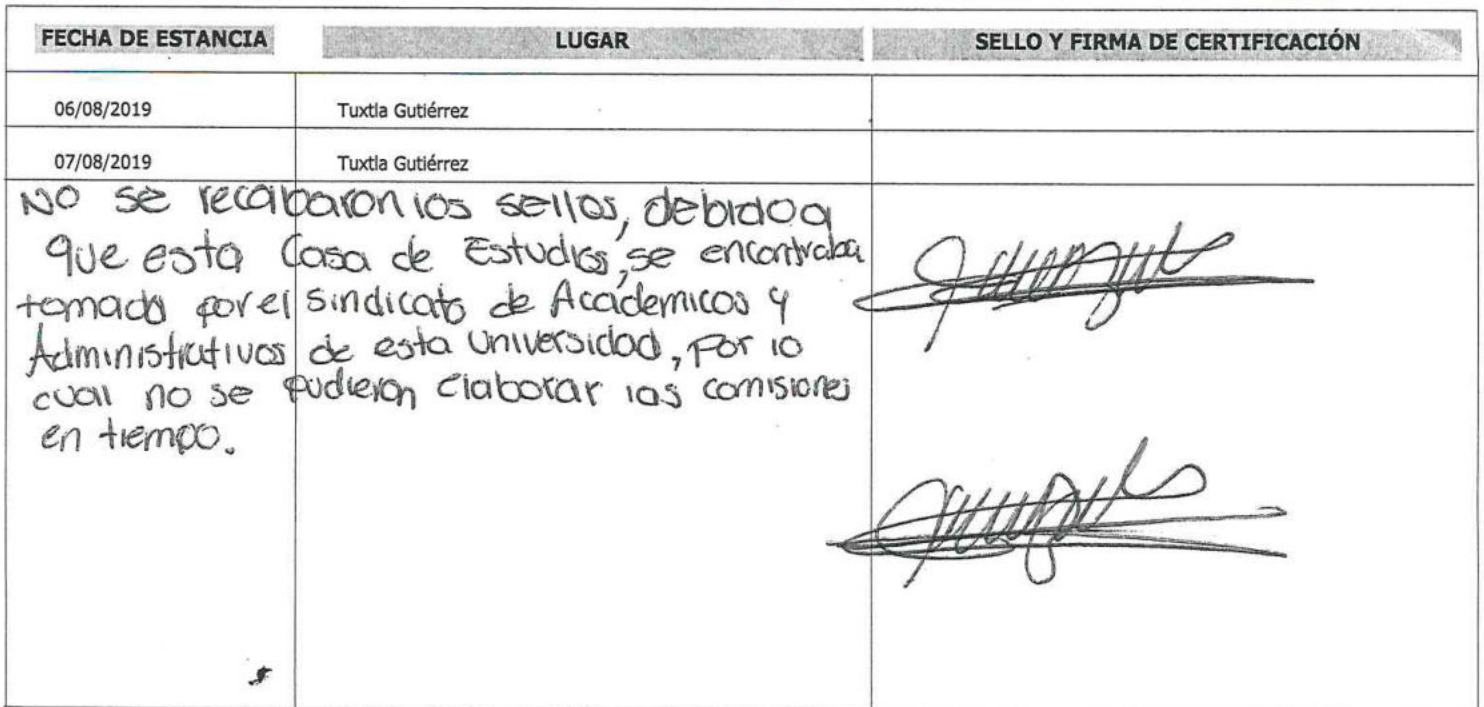 FECHA DE ESTANCIA LUGAR SELLO Y FIRMA DE CERTIFICACIÓN
06/08/2019 Tuxtla Gutiérrez
07/08/2019 Tuxtla Gutiérrez
No se recabaron los sellos, debido a
que esta Casa de Estudios, se encontraba
tomada por el sindicato de Académicos y
Administrativos de esta Universidad, Por lo
cual no se pudieron elaborar las comisiones
en tiempo.